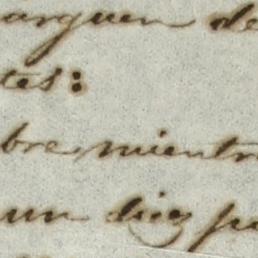 arguen de
tes:
bre mientr
un diez p